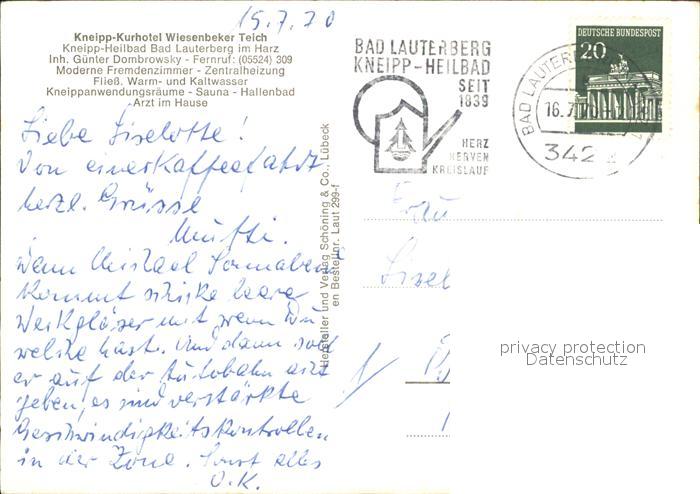 15.7.70
Kneipp-Kurhotel Wiesenbeker Teich
Kneipp-Heilbad Bad Lauterberg im Harz
Inh. Günter Dombrowsky - Fernruf: (05524) 309
Moderne Fremdenzimmer - Zentralheizung
Fließ. Warm- und Kaltwasser
Kneippanwendungsräume - Sauna - Hallenbad
Arzt im Hause
Liebe Liselotte!
Von einer Kaffeefahrt
herzl. Grüsse
Mutti.
Wenn Michael Sonnabend
kommt schicke leere
Weckgläser mit wenn Du
welche hast. Und dann soll
er auf der Autobahn acht
geben, es sind verstärkte
Geschwindigkeitskontrollen
in der Zone. Sonst alles
O.K.
Hersteller und Verlag Schöning & Co., Lübeck
en Bestell-Nr. Laut 299-f
BAD LAUTERBERG
KNEIPP-HEILBAD
SEIT
1839
HERZ
NERVEN
KREISLAUF
BAD LAUTER
16.7.70
342
DEUTSCHE BUNDESPOST
20
Frau
Lisel
privacy protection
Datenschutz